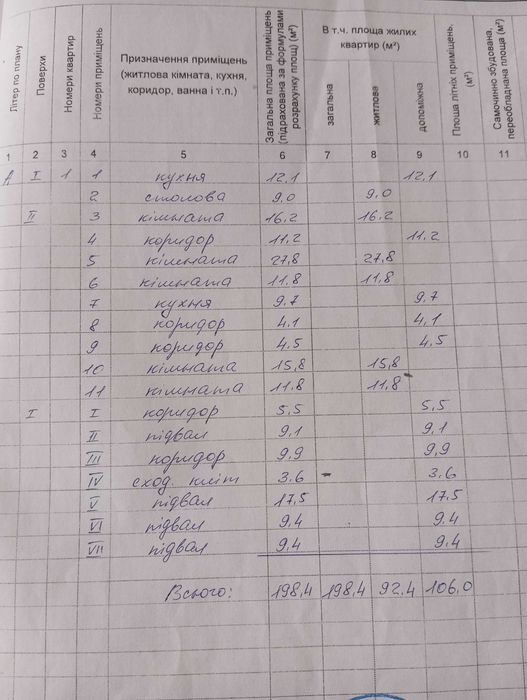 Літер по плану
Поверхи
Номери квартир
Номери приміщень
Призначення приміщень
(житлова кімната, кухня,
коридор, ванна і т.п.)
Загальна площа приміщень
(підрахована за формулами
розрахунку площ) (м²)
В т.ч. площа жилих
квартир (м²)
загальна
житлова
допоміжна
Площа літніх приміщень,
(м²)
Самочинно збудована,
переобладнана площа (м²)
1 2 3 4 5 6 7 8 9 10 11
А I 1 1 кухня 12,1 12,1
2 столова 9,0 9,0
II 3 кімната 16,2 16,2
4 коридор 11,2 11,2
5 кімната 27,8 27,8
6 кімната 11,8 11,8
7 кухня 9,7 9,7
8 коридор 4,1 4,1
9 коридор 4,5 4,5
10 кімната 15,8 15,8
11 кімната 11,8 11,8
I I коридор 5,5 5,5
II підвал 9,1 9,1
III коридор 9,9 9,9
IV сход. кліт 3.6 - 3.6
V підвал 17,5 17.5
VI підвал 9.4 9.4
VII підвал 9,4 9,4
Всього: 198,4 198,4 92,4 106,0